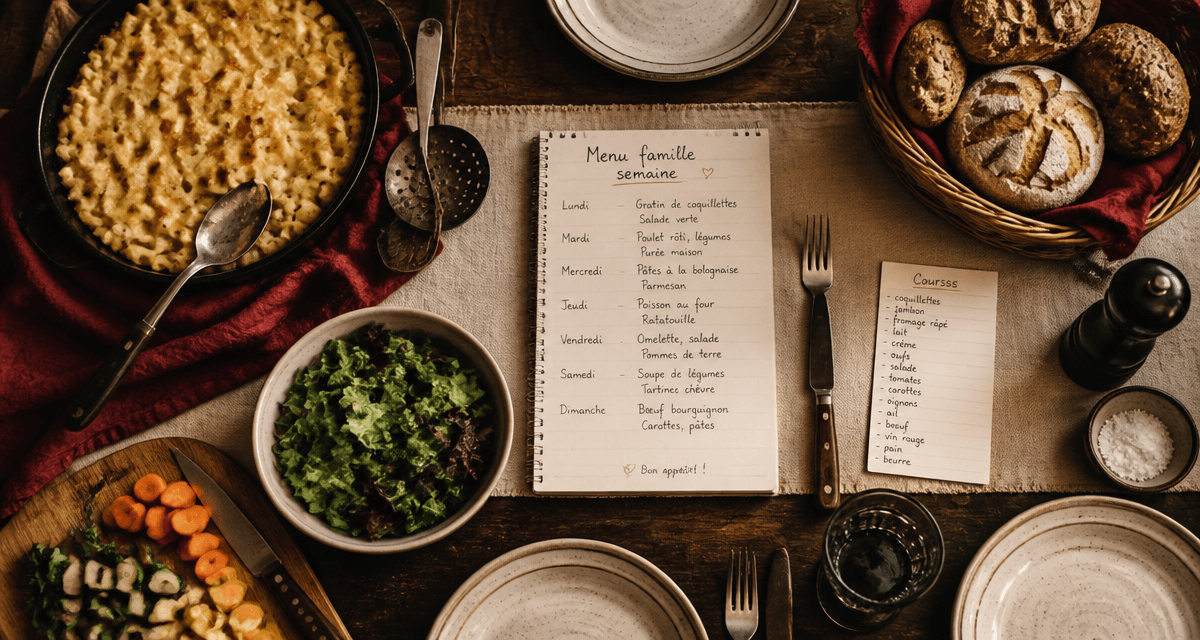 Menu famille
semaine
Lundi – Gratin de coquillettes
Salade verte
Mardi – Poulet rôti, légumes
Purée maison
Mercredi – Pâtes à la bolognaise
Parmesan
Jeudi – Poisson au four
Ratatouille
Vendredi – Omelette, salade
Pommes de terre
Samedi – Soupe de légumes
Tartinec chèvre
Dimanche – Bœuf bourguignon
Carottes, pâtes
Bon appétit !
Coursss
- coquillettes
- jambon
- fromage râpé
- lait
- crème
- œufs
- salade
- tomates
- carottes
- oignons
- ail
- bœuf
- vin rouge
- pain
- beurre